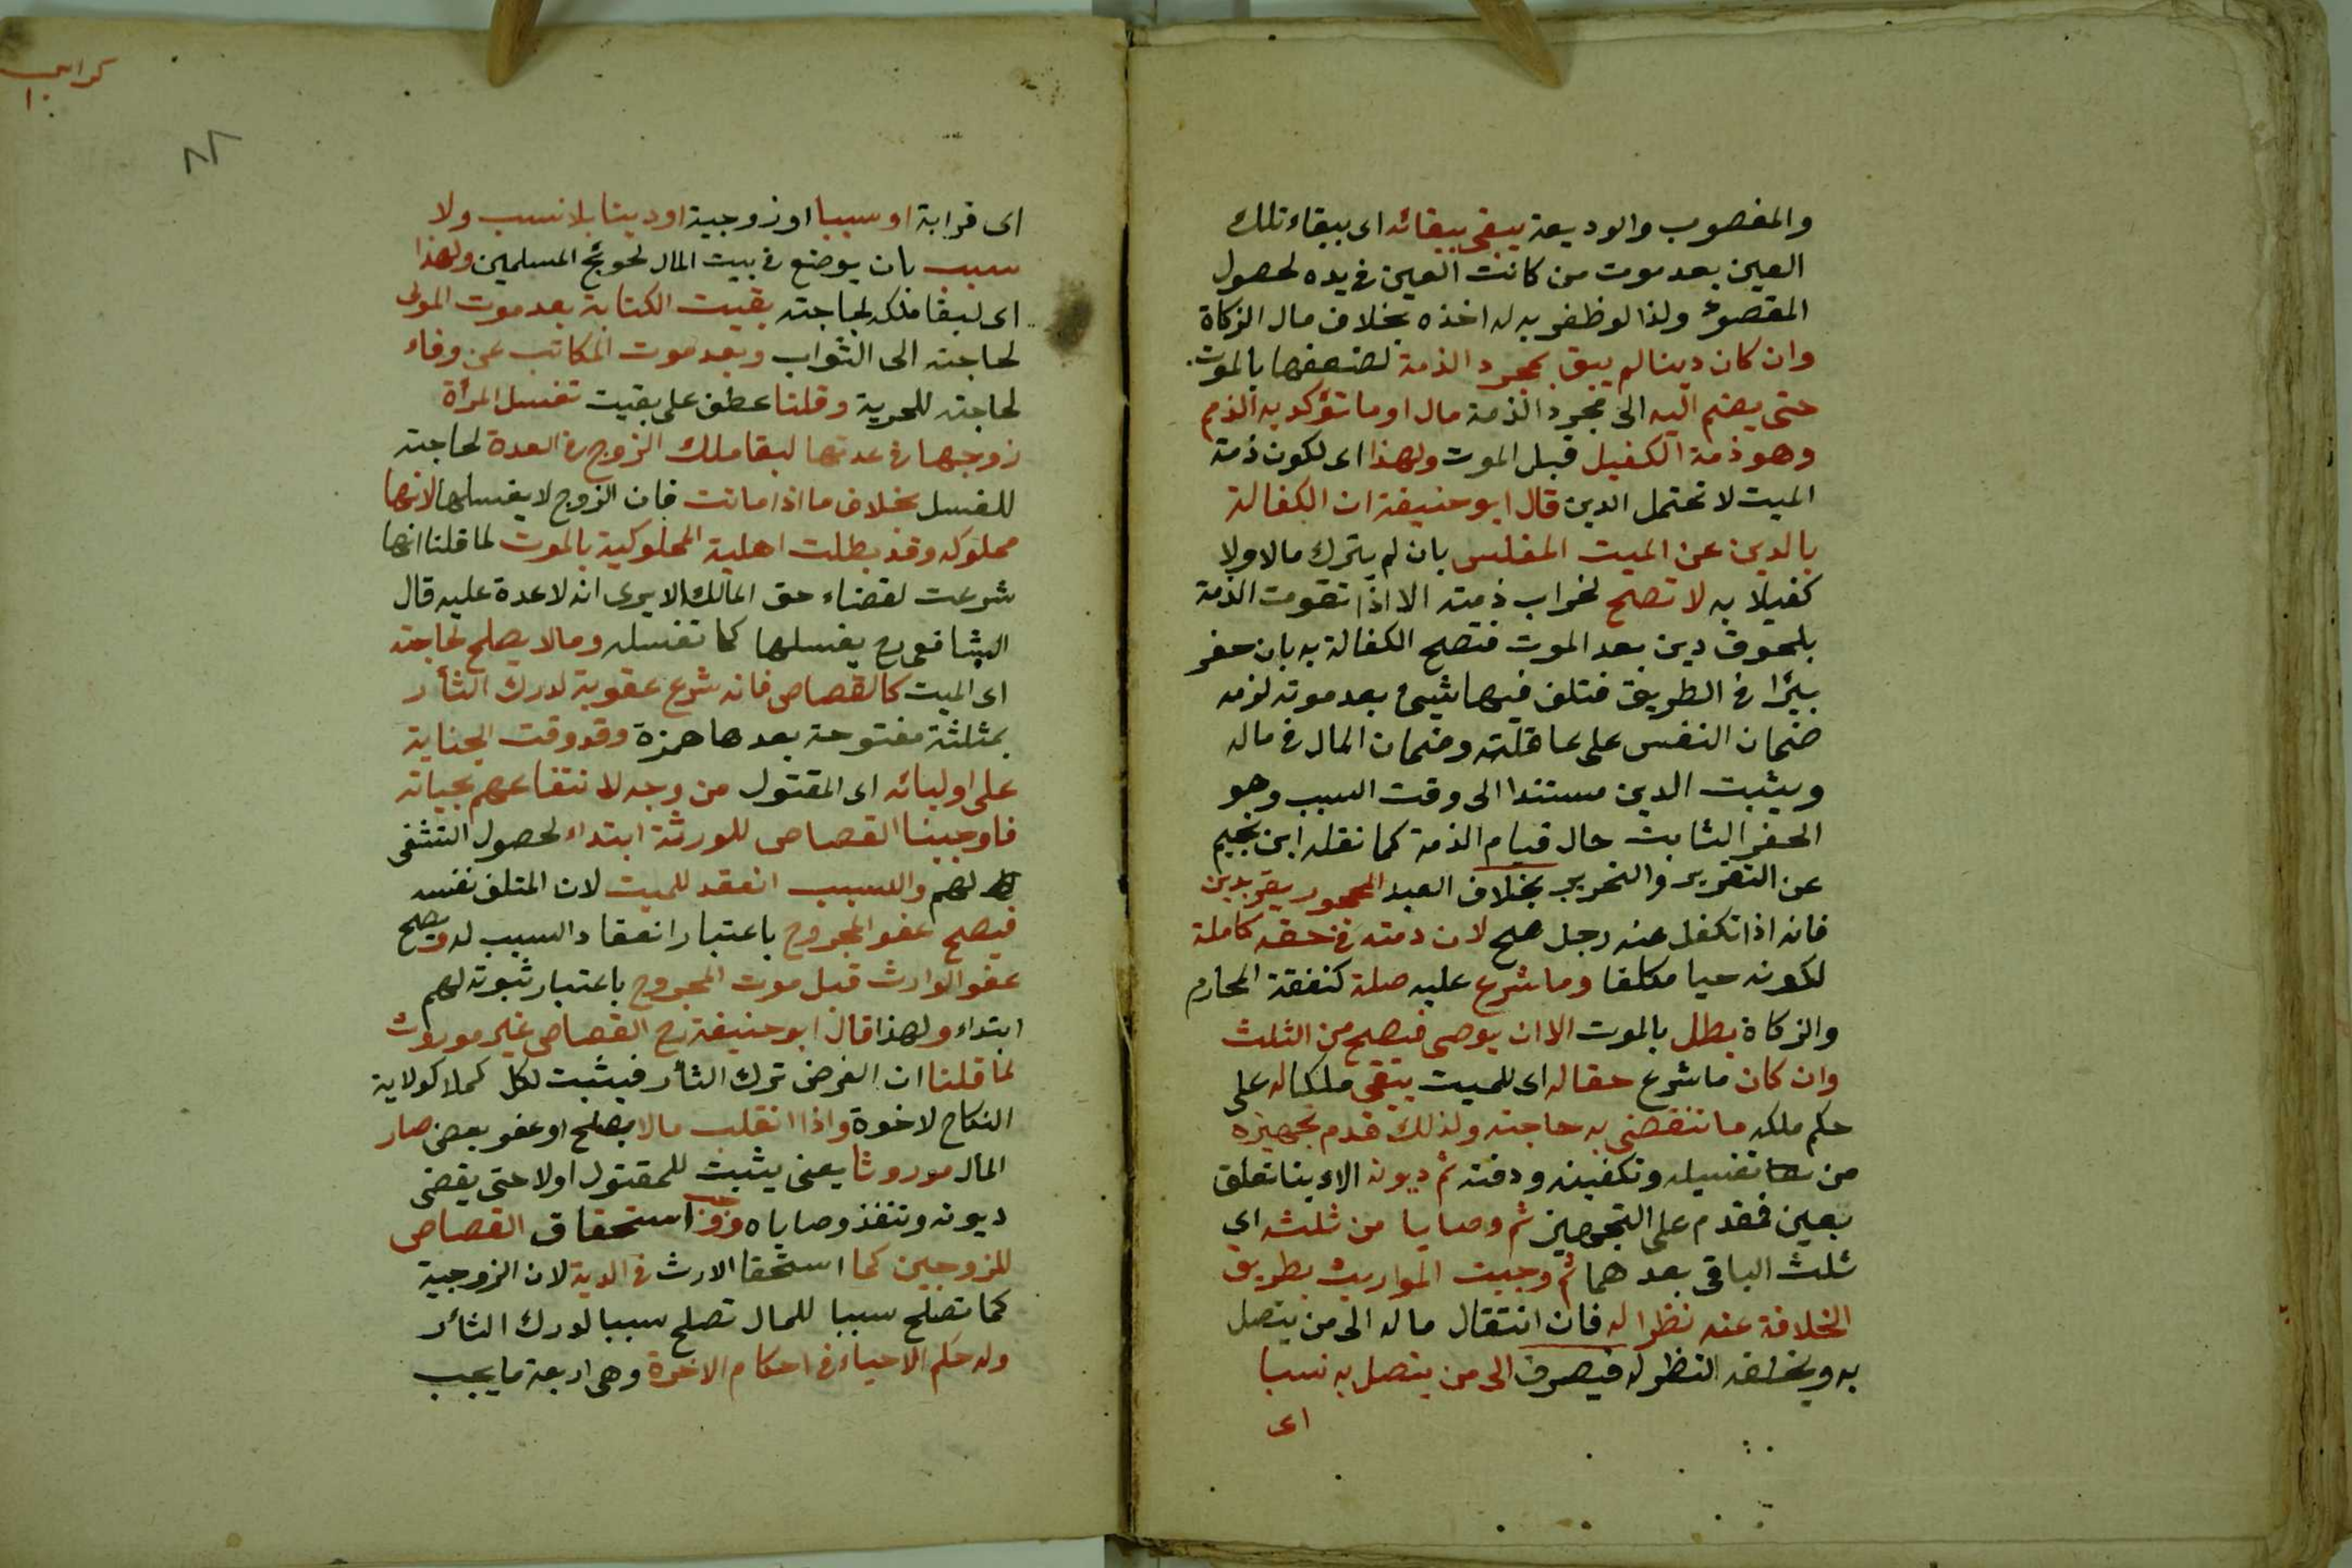 والمغصوب والوديعة يبقى ببقائه اى ببقاء تلك
العين بعد موت من كانت العين فى يده لحصول
المقصود ولذا لو ظفر به له اخذه بخلاف مال الزكاة
وان كان دينا لم يبق بمجرد الذمة لضعفها بالموت
حتى يضم اليه الى مجرد الذمة مال او ما تؤكد به الذمم
وهو ذمة الكفيل قبل الموت ولهذا اى لكون ذمة
الميت لا تحتمل الدين قال ابو حنيفة ان الكفالة
بالدين عن الميت المفلس بان لم يترك مالا ولا
كفيلا به لا تصح لخراب ذمته الا اذا تقومت الذمة
بلحوق دين بعد الموت فتصح الكفالة به بان حفر
بئرا فى الطريق فتلف فيها شيئ بعد موته لزمه
ضمان النفس على عاقلته وضمان المال فى ماله
ويثبت الدين مستندا الى وقت السبب وهو
الحفر الثابت حال قيام الذمة كما نقله ابن نجيم
عن التقرير والتحرير بخلاف العبد المحجور يقر بدين
فانه اذا تكفل عنه رجل صح لان ذمته فى حقه كاملة
لكونه حيا مكلفا وما شرع عليه صلة كنفقة المحارم
والزكاة بطل بالموت الا ان يوصى فيصح من الثلث
وان كان ما شرع حقا له اى للميت يبقى ملكا له على
حكم ملكه ما تنقضى به حاجته ولذلك قدم تجهيزه
من تغسيله وتكفينه ودفنه ثم ديونه الا دينا تعلق
بعين فقدم على التجهيز ثم وصايا من ثلثه اى
ثلث الباقى بعدهما ثم وجبت المواريث بطريق
الخلافة عنه نظرا له فان انتقال ماله الى من يتصل
به ويخلفه النظر له فيصرف الى من يتصل به نسبا
اى
كراس
١٠
٨٨
اى قرابة او سببا او زوجية او دينا بلا نسب ولا
سبب بان يوضع فى بيت المال لحوئج المسلمين ولهذا
اى لبقا ملكه لحاجته بقيت الكتابة بعد موت المولى
لحاجته الى الثواب وبعد موت المكاتب عن وفاء
لحاجته للحرية وقلنا عطف على بقيت تغسل المرأة
زوجها فى عدتها لبقا ملك الزوج فى العدة لحاجته
للغسل بخلاف ما اذا ماتت فان الزوج لا يغسلها لانها
مملوكه وقد بطلت اهلية المملوكية بالموت لما قلنا انها
شرعت لقضاء حق المالك الا يرى انه لا عدة عليه قال
الشافعى رح يغسلها كما تغسله وما لا يصلح لحاجته
اى الميت كالقصاص فانه شرع عقوبة لدرك الثأر
بمثلثة مفتوحة بعدها همزة وقد وقت الجناية
على اوليائه اى المقتول من وجه لانتفاعهم بحياته
فاوجبنا القصاص للورثة ابتداء لحصول التشفى
لهم والسبب انعقد للميت لان المتلف نفسه
فيصح عفو المجروح باعتبار انعقاد السبب له ويصح
عفو الوارث قبل موت المجروح باعتبار ثبوته لهم
ابتداء ولهذا قال ابو حنيفة رح القصاص غير موروث
لما قلنا ان الغرض ترك الثأر فيثبت لكل كملا كولاية
النكاح لاخوة واذا انقلب مالا بصلح او عفو بعض صار
المال موروثا يعنى يثبت للمقتول اولا حتى يقضى
ديونه وتنفذ وصاياه ووجب استحقاق القصاص
للزوجين كما استحقا الارث فى الدية لان الزوجية
كما تصلح سببا للمال تصلح سببا لدرك الثأر
وله حكم الاحياء فى احكام الاخرة وهى اربعة ما يجب